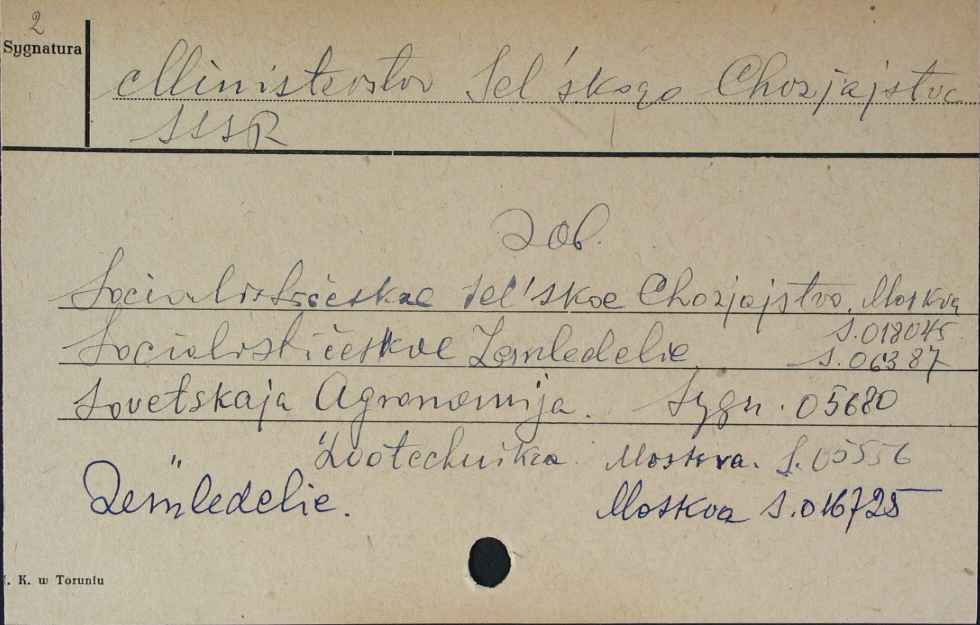 2
Sygnatura
Ministerstvo Sel'skogo Chozjajstva
SSSR
Zob.
Socialističeskoe Sel'skoe Chozjajstvo, Moskva
S.018045
Socialističeskoe Zemledelie S.06387
Sovetskaja Agronomija. Sygn. 05680
" Zootechnika Moskva. S.05556
Zemledelie. Moskva S.016725
. K. w Toruniu